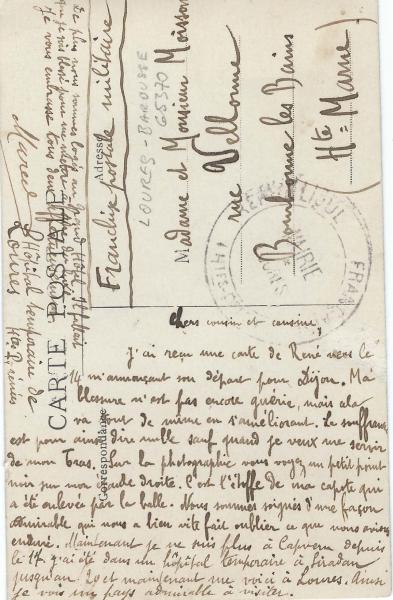 Chers cousin et cousine,
J'ai reçu une carte de René vers le
14 m'annonçant son départ pour Dijon. Ma
blessure n'est pas encore guérie, mais cela
va tout de même en s'améliorant. La souffrance
est pour ainsi dire nulle sauf quand je veux me servir
de mon bras. Sur la photographie vous voyez un petit point
noir sur mon coude droite. C'est l'étoffe de ma capote qui
a été enlevée par la balle. Nous sommes soignés d'une façon
admirable qui nous a bien vite fait oublier ce que nous avions
enduré. Maintenant je ne suis plus à Capvern depuis
le 17. J'ai été dans un hôpital temporaire à Siradan
jusqu'au 20 et maintenant me voici à Loures. Ainsi
je vois un pays admirable à visiter.
De plus nous sommes logés au Grand Hôtel. Il fallait
que je sois blessé pour me mettre à
Je vous embrasse tous deux
Marcel
Hôpital temporaire de
Loures
Htes Pyrénées
CARTE POSTALE
Correspondance
Adresse
Franchise postale militaire
LOURES-BAROUSSE
65370
Madame et Monsieur Moisson
rue Vellonne
Bourbonne les Bains
(Hte Marne)
REPUBLIQUE FRANÇAISE
MAIRIE